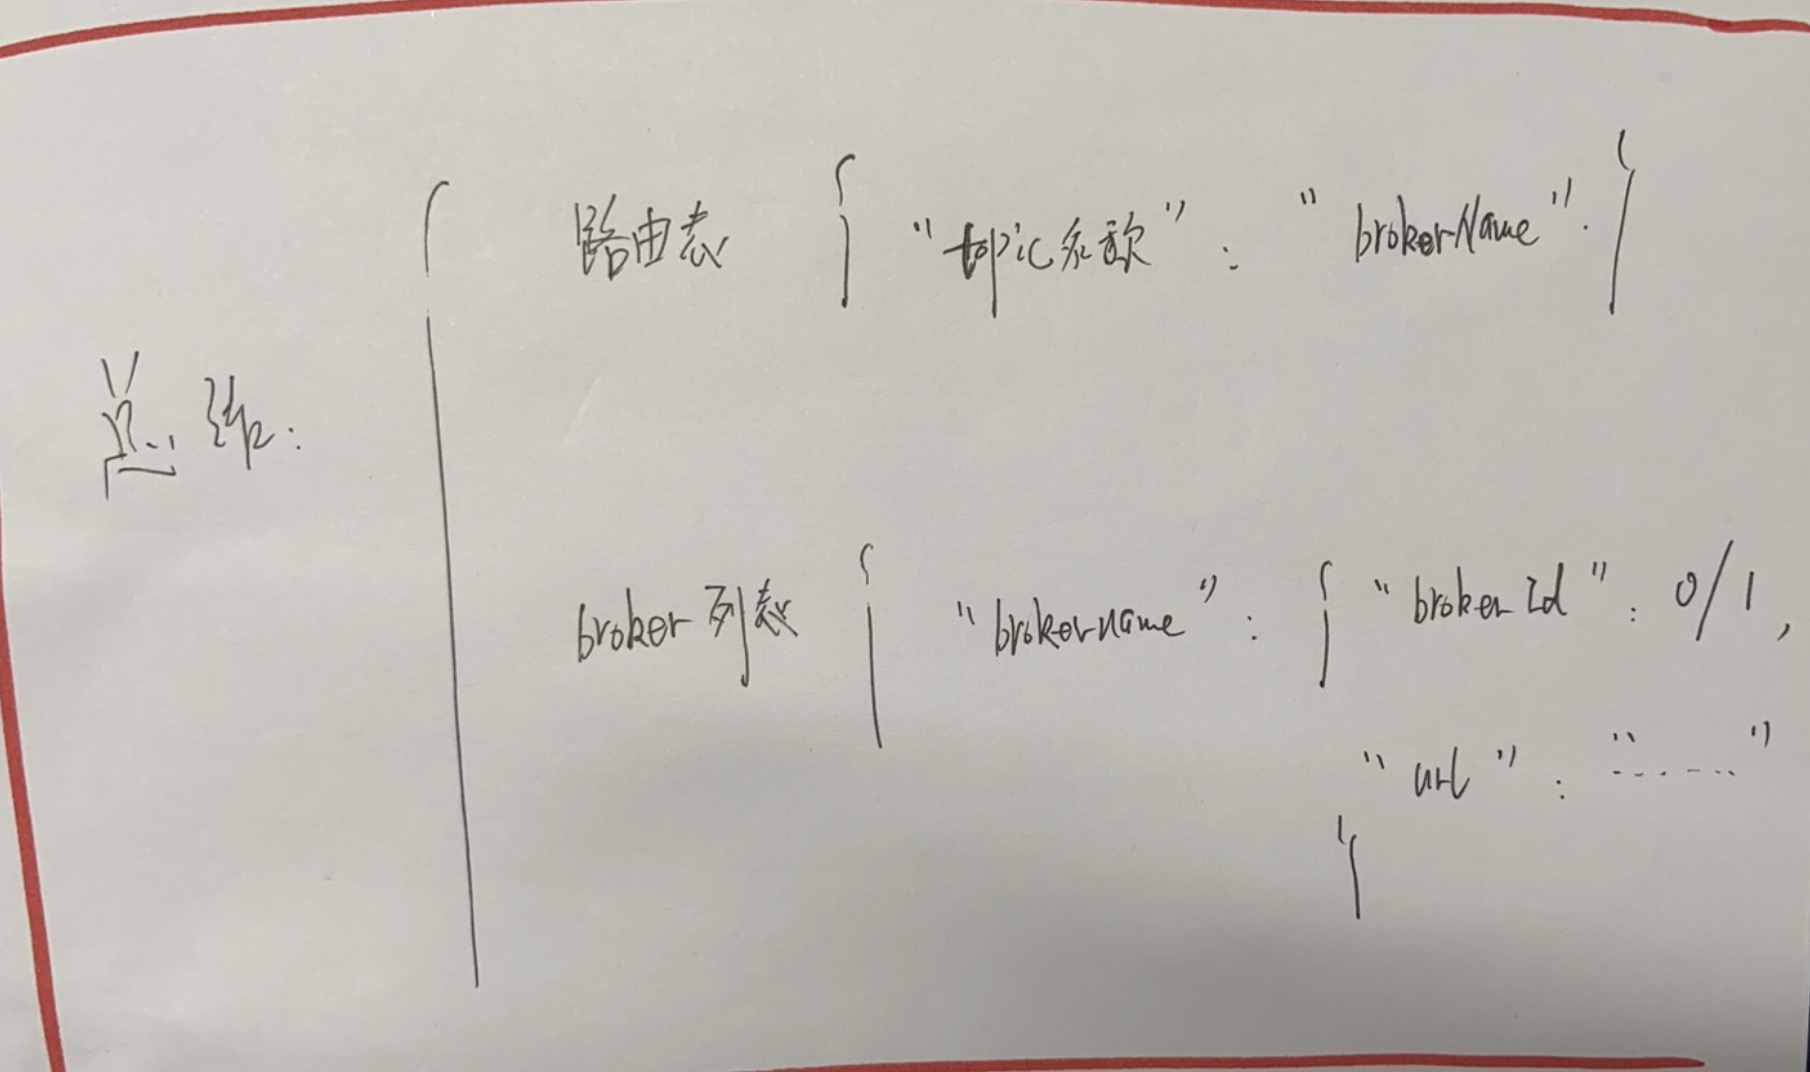 路由表 { "topic名称" : "brokerName". }
总结:
broker列表 { "brokername" : { "brokerId" : 0/1,
"url" : "......"
}